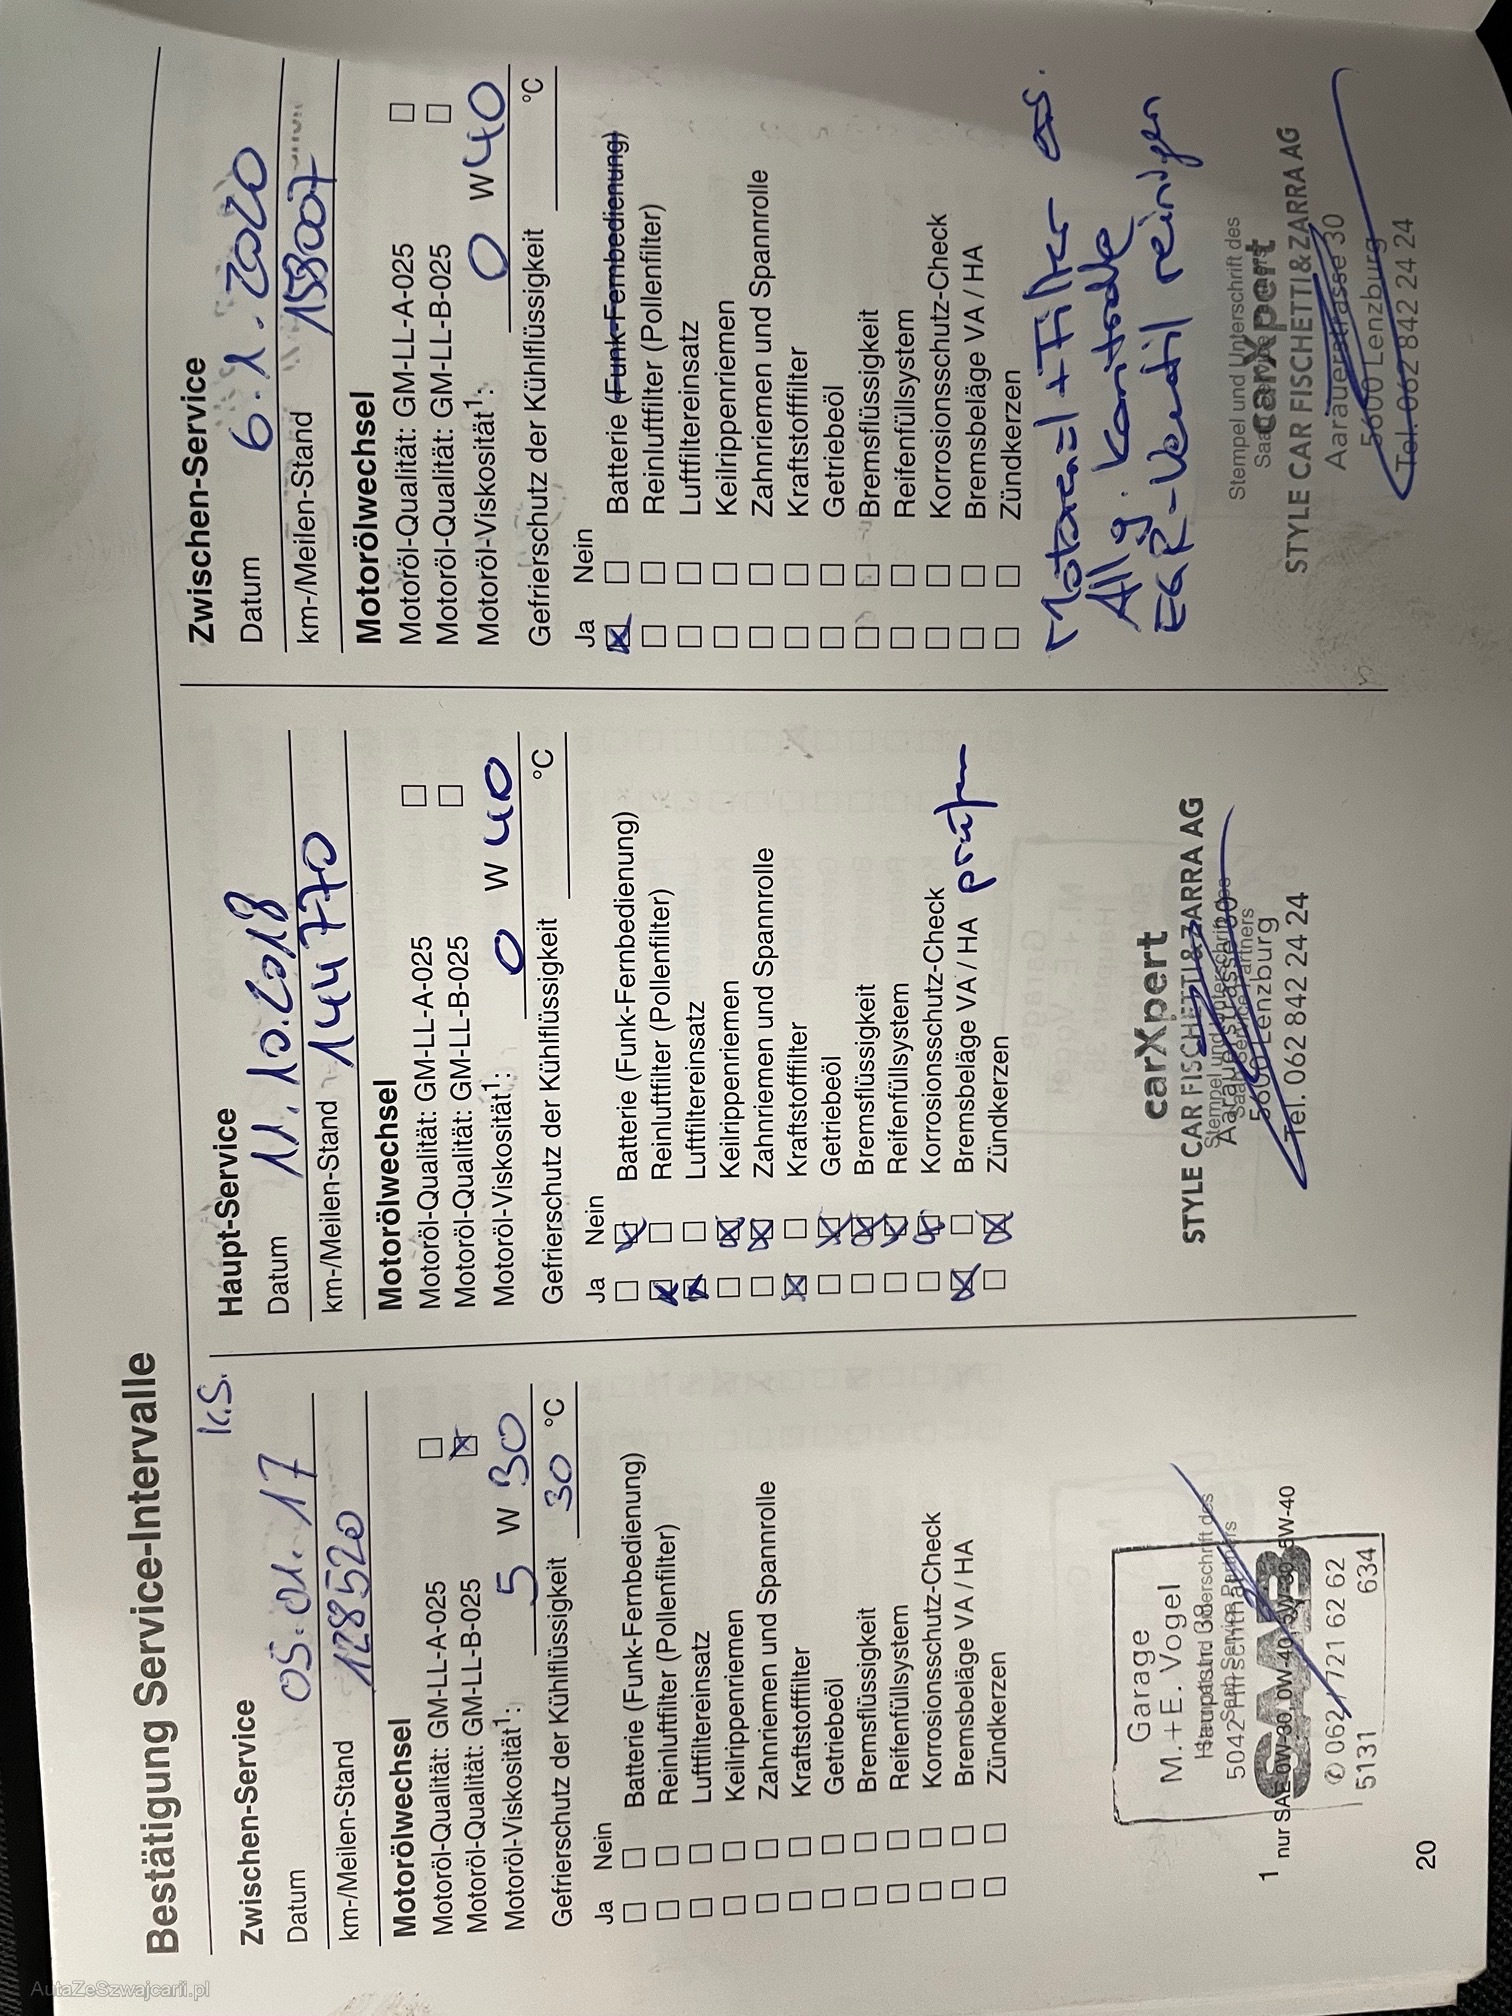 Bestätigung Service-Intervalle
Zwischen-Service K.S.
Datum 05.01.17
km-/Meilen-Stand 128520
Motorölwechsel
Motoröl-Qualität: GM-LL-A-025
Motoröl-Qualität: GM-LL-B-025
Motoröl-Viskosität¹: 5 W 30
Gefrierschutz der Kühlflüssigkeit 30 °C
Ja Nein
Batterie (Funk-Fernbedienung)
Reinluftfilter (Pollenfilter)
Luftfiltereinsatz
Keilrippenriemen
Zahnriemen und Spannrolle
Kraftstofffilter
Getriebeöl
Bremsflüssigkeit
Reifenfüllsystem
Korrosionsschutz-Check
Bremsbeläge VA / HA
Zündkerzen
Garage
M.+E. Vogel
Hauptstr. 38
5042 Hirschthal
SAAB
✆ 062 / 721 62 62
5131 634
1 nur SAE 0W-30, 0W-40, 5W-30, 5W-40
20
Haupt-Service
Datum 11.10.2018
km-/Meilen-Stand 144770
Motorölwechsel
Motoröl-Qualität: GM-LL-A-025
Motoröl-Qualität: GM-LL-B-025
Motoröl-Viskosität¹: 0 W 40
Gefrierschutz der Kühlflüssigkeit °C
Ja Nein
Batterie (Funk-Fernbedienung)
Reinluftfilter (Pollenfilter)
Luftfiltereinsatz
Keilrippenriemen
Zahnriemen und Spannrolle
Kraftstofffilter
Getriebeöl
Bremsflüssigkeit
Reifenfüllsystem
Korrosionsschutz-Check
Bremsbeläge VA / HA prüfen
Zündkerzen
carXpert
STYLE CAR FISCHETTI & ZARRA AG
Stempel und Unterschrift des
Aarauerstrasse 30
Saab Service Partners
5600 Lenzburg
Tel. 062 842 24 24
Zwischen-Service
Datum 6.1.2020
km-/Meilen-Stand 158007
Motorölwechsel
Motoröl-Qualität: GM-LL-A-025
Motoröl-Qualität: GM-LL-B-025
Motoröl-Viskosität¹: 0 W 40
Gefrierschutz der Kühlflüssigkeit °C
Ja Nein
Batterie (Funk-Fernbedienung)
Reinluftfilter (Pollenfilter)
Luftfiltereinsatz
Keilrippenriemen
Zahnriemen und Spannrolle
Kraftstofffilter
Getriebeöl
Bremsflüssigkeit
Reifenfüllsystem
Korrosionsschutz-Check
Bremsbeläge VA / HA
Zündkerzen
Motorenöl + Filter ers.
Allg. Kontrolle
EGR-Ventil reinigen
Stempel und Unterschrift des
carXpert
STYLE CAR FISCHETTI & ZARRA AG
Aarauerstrasse 30
5600 Lenzburg
Tel. 062 842 24 24
AutaZeSzwajcarii.pl